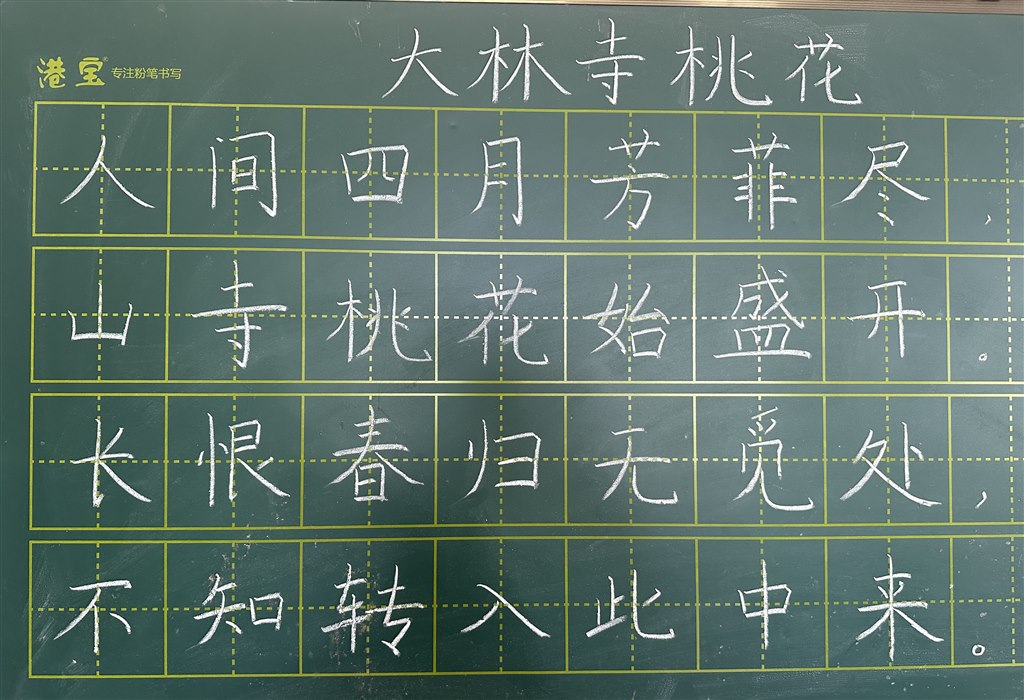 港宝 专注粉笔书写
大林寺桃花
人间四月芳菲尽，
山寺桃花始盛开。
长恨春归无觅处，
不知转入此中来。